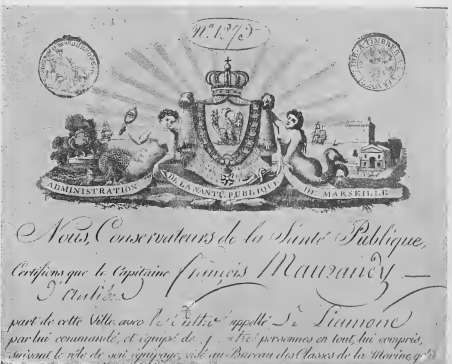 N.º
ADMINISTRATION DE LA SANTÉ PUBLIQUE DE MARSEILLE
Nous, Conservateurs de la Santé Publique,
Certifions que le Capitaine françois
d'antibes
part de cette Ville avec le appellé Le Liamone
par lui commandé, et équipé de personnes en tout, lui compris,
suivant le rôle de son équipage, visé au Bureau des Classes de la Marine